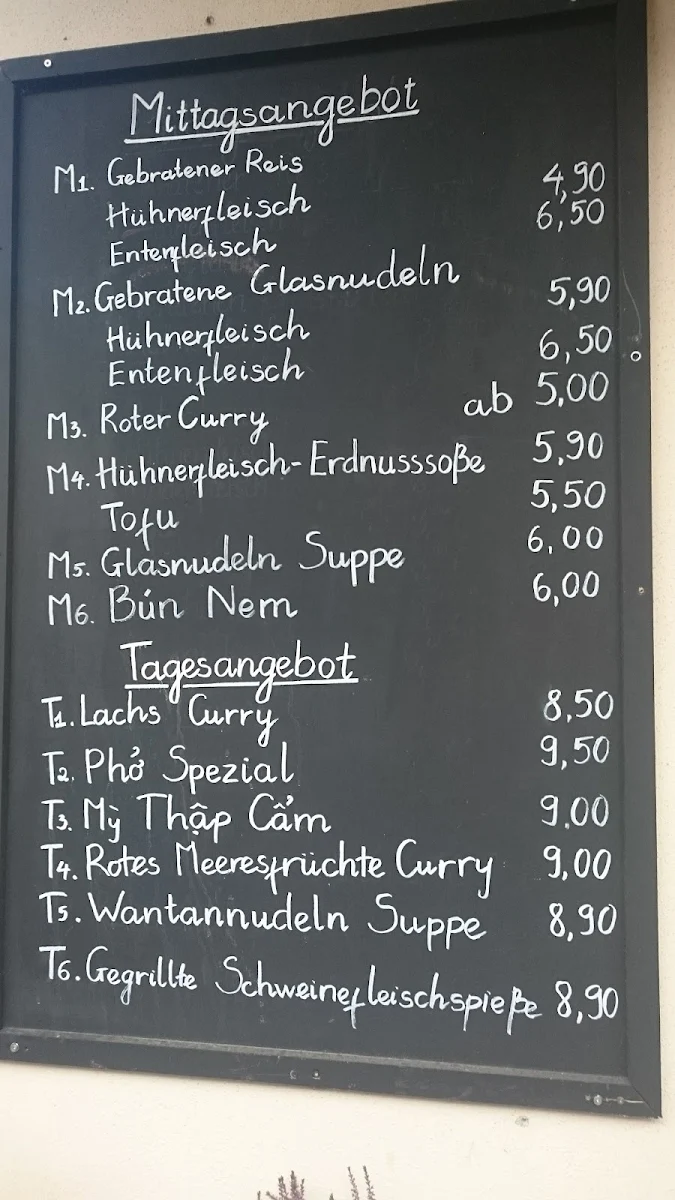 Mittagsangebot
M1. Gebratener Reis
Hühnerfleisch 4,90
Entenfleisch 6,50
M2. Gebratene Glasnudeln
Hühnerfleisch 5,90
Entenfleisch 6,50
M3. Roter Curry ab 5,00
M4. Hühnerfleisch-Erdnusssoße 5,90
Tofu 5,50
M5. Glasnudeln Suppe 6,00
M6. Bún Nem 6,00
Tagesangebot
T1. Lachs Curry 8,50
T2. Phở Spezial 9,50
T3. Mỳ Thập Cẩm 9.00
T4. Rotes Meeresfrüchte Curry 9,00
T5. Wantannudeln Suppe 8,90
T6. Gegrillte Schweinefleischspieße 8,90